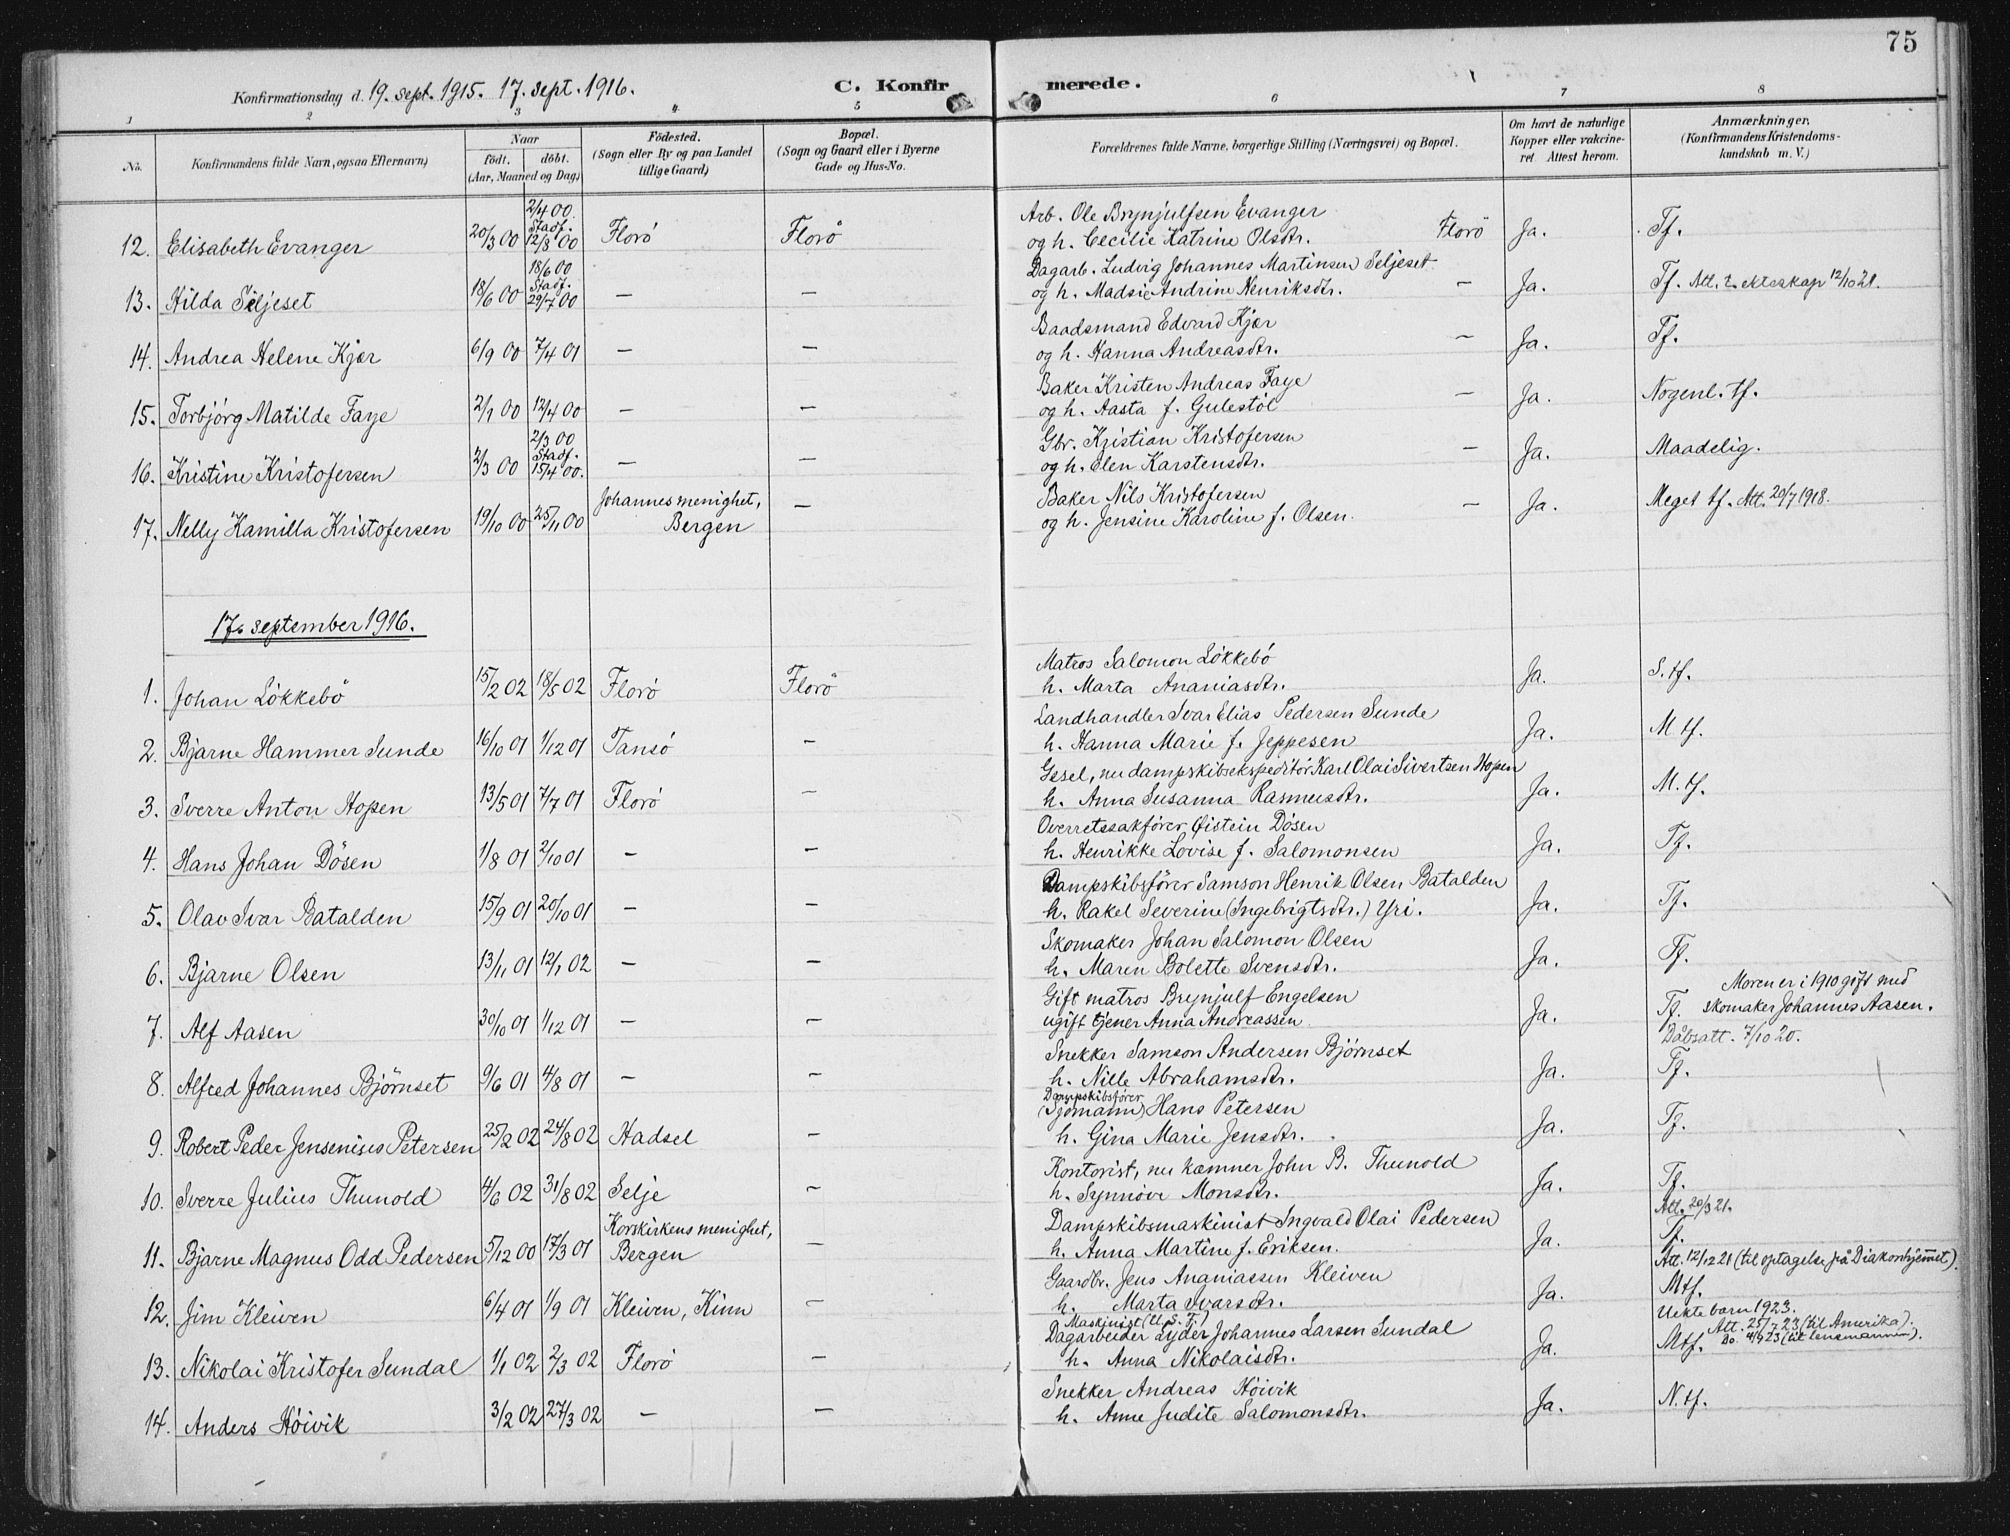 75
Konfirmationsdag d. 19. sept. 1915. 17. sept. 1916.
C. Konfirmerede.
1 2 3 4 5 6 7 8
No.
Konfirmandens fulde Navn, ogsaa Efternavn)
Naar
födt. döbt.
(Aar, Maaned og Dag)
Födested.
(Sogn eller By og paa Landet
tillige Gaard)
Bopæl.
(Sogn og Gaard eller i Byerne
Gade og Hus-No.
Forældrenes fulde Navne, borgerlige Stilling (Næringsvei) og Bopæl.
Om havt de naturlige
Kopper eller vakcine-
ret. Attest herom.
Anmærkninger.
(Konfirmandens Kristendoms-
kundskab m. V.)
12. Elisabeth Evanger 20/3 00 2/4 00. Stadf. 12/8 00 Florö Florö Arb. Ole Brynjulfsen Evanger
og h. Cecilie Katrine Olsdtr. Florö Ja. Tf.
13. Hilda Seljeset 18/6 00 18/6 00 Stadf. 29/7 00 — — Dagarb. Ludvig Johannes Martinsen Seljeset
og h. Madsie Andrine Henriksdtr. — Ja. Tf. Att. t. ekteskap 12/10 21.
14. Andrea Helene Kjær 6/9 00 7/4 01 — — Baadsmand Edvard Kjær
og h. Hanna Andreasdtr. — Ja. Tf.
15. Torbjörg Matilde Faye 2/1 00 12/4 00 — — Baker Kristen Andreas Faye
og h. Aasta f. Gulestöl — Ja. Nogenl. tf.
16. Kristine Kristofersen 2/3 00 2/3 00 Stadf. 15/4 00. — — Gbr. Kristian Kristofersen
og h. Elen Karstensdtr. — Ja. Maadelig.
17. Nelly Kamilla Kristofersen 19/10 00 25/11 00 Johannes menighet, Bergen — Baker Nils Kristofersen
og h. Jensine Karoline f. Olsen. — Ja. Meget tf. Att. 20/7 1918.
17. september 1916.
1. Johan Lökkebö 15/2 02 18/5 02 Florö Florö Matros Salomon Lökkebö
h. Marta Ananiasdtr. Ja. S. tf.
2. Bjarne Hammer Sunde 16/10 01 1/12 01 Tansö — Landhandler Ivar Elias Pedersen Sunde
h. Hanna Marie f. Jeppesen Ja. M tf.
3. Sverre Anton Hopen 13/5 01 7/7 01 Florö — Gsel, nu dampskibsekspeditör Karl Olai Sivertsen Hopen
h. Anna Susanna Rasmusdtr. Ja. M. tf.
4. Hans Johan Dösen 1/8 01 2/10 01 — — Overretssakförer Øistein Dösen
h. Henrikke Lovise f. Salomonsen Ja. Tf.
5. Olav Ivar Batalden 15/9 01 20/10 01 — — Dampskibsförer Samson Henrik Olsen Batalden
h. Rakel Severine (Ingebrigtsdtr.) Yri. Ja. Tf.
6. Bjarne Olsen 13/11 01 12/1 02 — — Skomaker Johan Salomon Olsen
h. Maren Bolette Svensdtr. Ja. Tf.
7. Alf Aasen 30/10 01 1/12 01 — — Gift matros Brynjulf Engelsen
ugift tjener Anna Andreassen. Ja. Tf. Moren er i 1910 gift med
skomaker Johannes Aasen.
Dåbsatt. 7/10 20.
8. Alfred Johannes Bjørnset 9/6 01 4/8 01 — — Snekker Samson Andersen Bjørnset
h. Nille Abrahamsdtr. Ja. Tf.
9. Robert Peder Jensenius Petersen 25/2 02 24/8 02 Hadsel — Dampskibsfører
(Sjömann) Hans Petersen
h. Gina Marie Jensdtr. Ja. Tf.
10. Sverre Julius Thunold 4/6 02 31/8 02 Selje — Kontorist, nu kæmner John B. Thunold
h. Synnöve Monsdtr. Ja. Tf.
Att. 20/3 21.
11. Bjarne Magnus Odd Pedersen 5/12 00 17/3 01 Korskirkens menighet, Bergen — Dampskibsmaskinist Ingvald Olai Pedersen
h. Anna Martine f. Eriksen. Ja. Tf.
Att. 12/12 21 (til optagelse på Diakonhjemmet).
12. Jim Kleiven 6/4 01 1/9 01 Kleiven, Kinn — Gaardbr. Jens Ananiassen Kleiven
h. Marta Ivarsdtr. Ja. Mtf.
Uekte barn 1923.
13. Nikolai Kristofer Sundal 1/1 02 2/3 02 Florö — Maskinist (U. S. F.)
Dagarbeider Lyder Johannes Larsen Sundal
h. Anna Nikolaisdtr. Ja. Mtf. Att. 25/7 23 (til Amerika).
Do. 4/9 23 (til lensmannen).
14. Anders Höivik 3/2 02 27/3 02 — — Snekker Andreas Höivik
h. Anne Judite Salomonsdtr. Ja. N. tf.